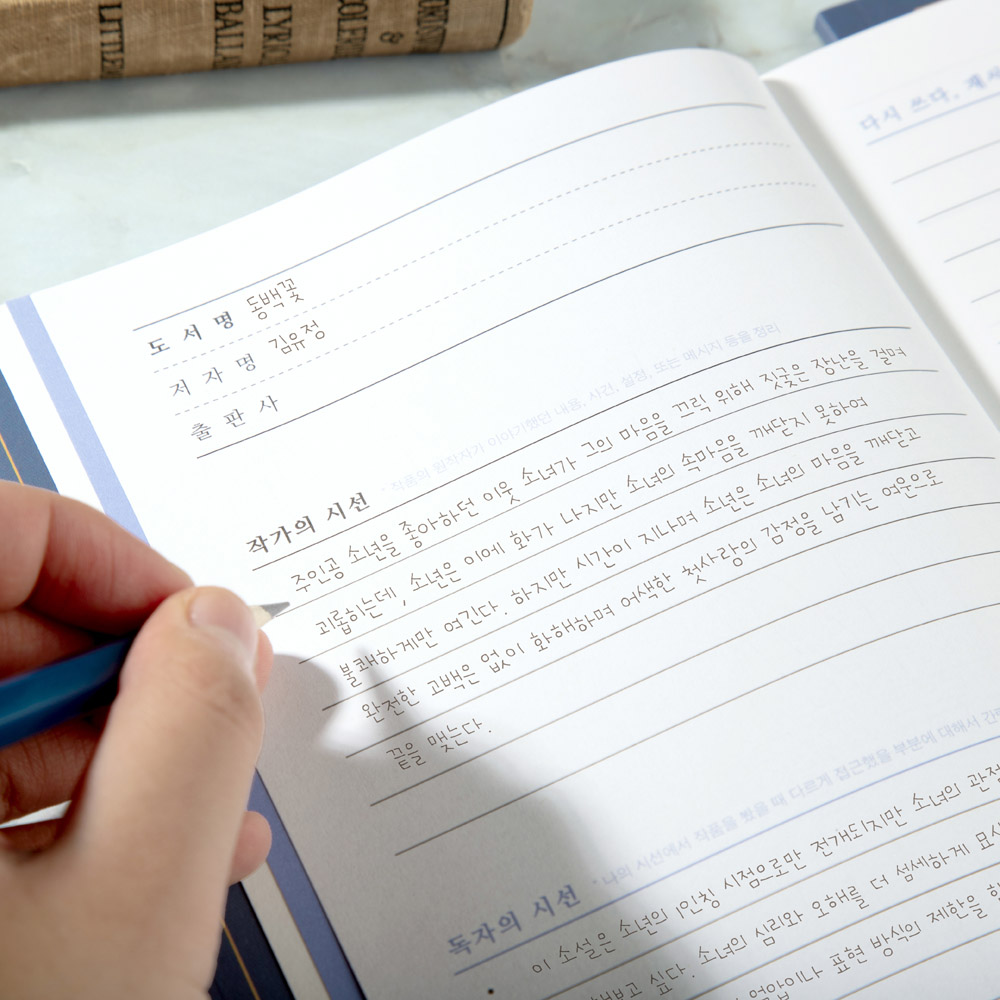 & 
BALLA
LYRICA
도서명 동백꽃
저자명 김유정
출판사
작가의 시선 * 작품의 원작자가 이야기했던 내용, 사건, 설정, 또는 메시지 등을 정리
주인공 소년을 좋아하던 이웃 소녀가 그의 마음을 끄릭 위해 짓궂은 장난을 걸며
괴롭히는데, 소년은 이에 화가 나지만 소녀의 속마음을 깨닫지 못하여
불쾌하게만 여긴다. 하지만 시간이 지나며 소년은 소녀의 마음을 깨닫고
완전한 고백은 없이 화해하며 어색한 첫사랑의 감정을 남기는 여운으로
끝을 맺는다.
독자의 시선 * 나의 시선에서 작품을 봤을 때 다르게 접근했을 부분에 대해서
이 소설은 소년의 1인칭 시점으로만 전개되지만 소녀의 관점
싶다. 소녀의 심리와 오해를 더 섬세하게
표현 방식의 제한을
다시 쓰다,